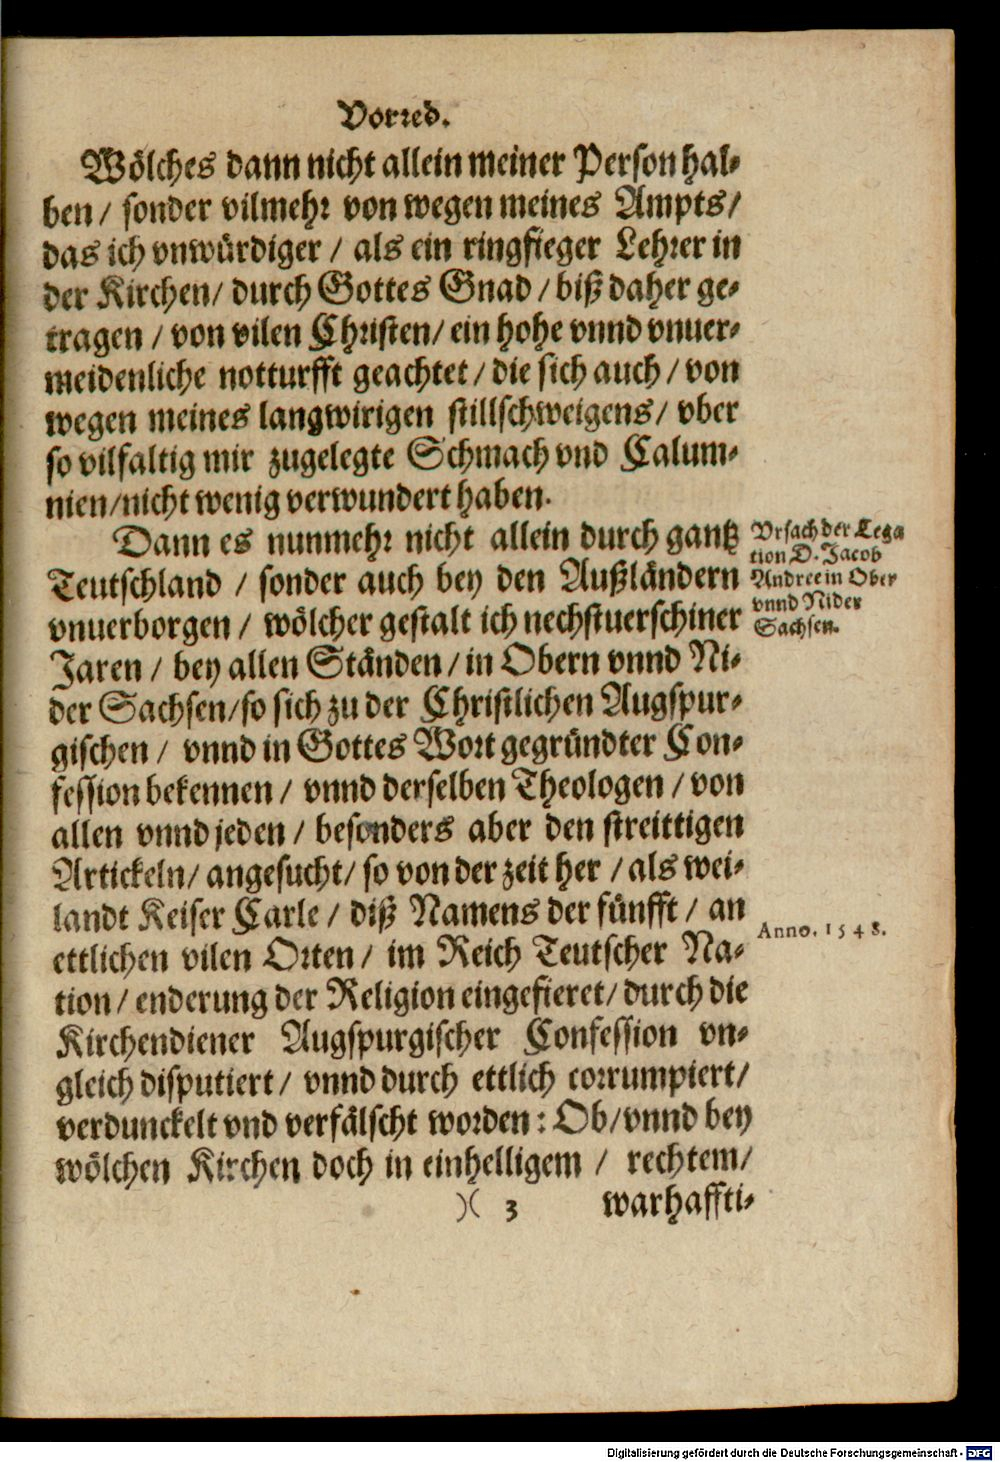 Vorred.
Wölches dann nicht allein meiner Person hal-
ben / sonder vilmehr von wegen meines Ampts /
das ich vnwürdiger / als ein ringfieger Lehrer in
der Kirchen / durch Gottes Gnad / biß daher ge-
tragen / von vilen Christen / ein hohe vnnd vnuer-
meidenliche notturfft geachtet / die sich auch / von
wegen meines langwirigen stillschweigens / vber
so vilfaltig mir zugelegte Schmach vnd Calum-
nien / nicht wenig verwundert haben.
Dann es nunmehr nicht allein durch gantz
Teutschland / sonder auch bey den Außländern
vnuerborgen / wölcher gestalt ich nechstuerschiner
Jaren / bey allen Ständen / in Obern vnnd Ni-
der Sachsen / so sich zu der Christlichen Augspur-
gischen / vnnd in Gottes Wort gegründter Con-
fession bekennen / vnnd derselben Theologen / von
allen vnnd jeden / besonders aber den streittigen
Artickeln / angesucht / so von der zeit her / als wei-
landt Keiser Carle / diß Namens der fünfft / an
ettlichen vilen Orten / im Reich Teutscher Na-
tion / enderung der Religion eingefieret / durch die
Kirchendiener Augspurgischer Confession vn-
gleich disputiert / vnnd durch ettlich corrumpiert /
verdunckelt vnd verfälscht worden : Ob / vnnd bey
wölchen Kirchen doch in einhelligem / rechtem /
)( 3 warhaffti-
Vrsach der Lega
tion D. Jacob
Andree in Ober
vnnd Nider
Sachsen.
Anno. 1548.
Digitalisierung gefördert durch die Deutsche Forschungsgemeinschaft - DFG